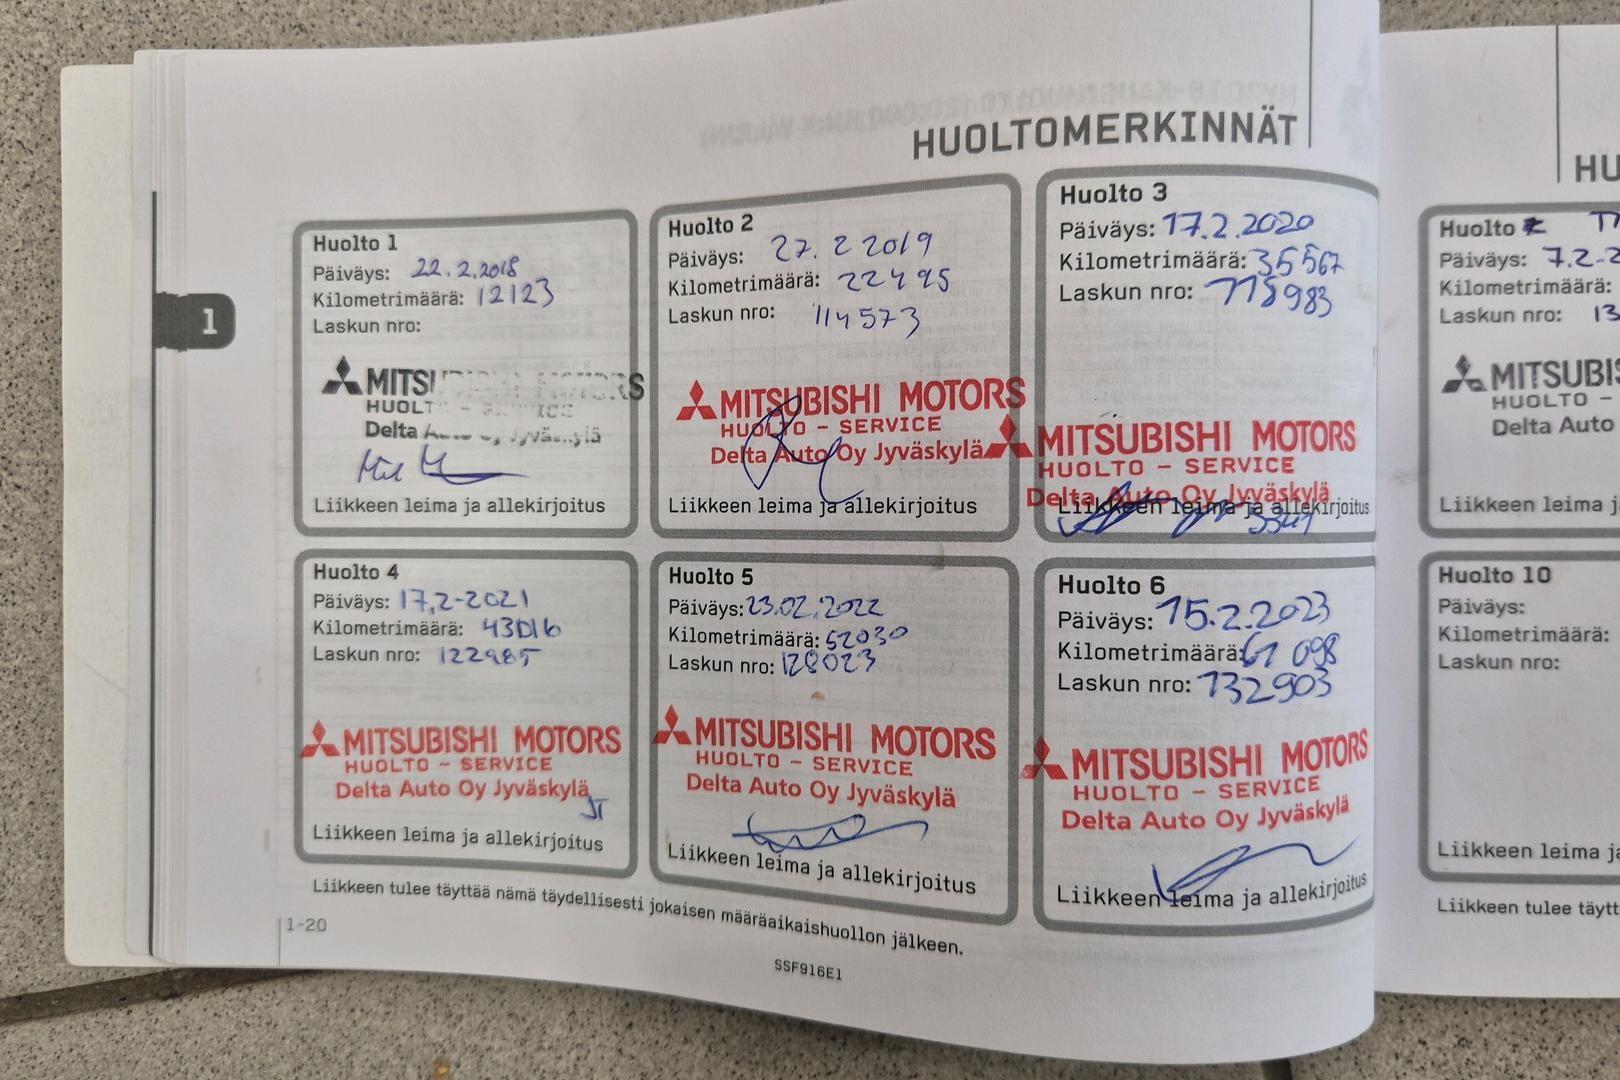 HUOLTOMERKINNÄT
Huolto 1
Päiväys: 22.2.2018
Kilometrimäärä: 12123
Laskun nro:
MITSUBISHI MOTORS
HUOLTO - SERVICE
Delta Auto Oy Jyväskylä
Liikkeen leima ja allekirjoitus
Huolto 2
Päiväys: 27.2 2019
Kilometrimäärä: 22495
Laskun nro: 114573
MITSUBISHI MOTORS
HUOLTO - SERVICE
Delta Auto Oy Jyväskylä
Liikkeen leima ja allekirjoitus
Huolto 3
Päiväys: 17.2.2020
Kilometrimäärä: 35567
Laskun nro: 118983
MITSUBISHI MOTORS
HUOLTO - SERVICE
Delta Auto Oy Jyväskylä
Liikkeen leima ja allekirjoitus
1
Huolto 4
Päiväys: 17,2-2021
Kilometrimäärä: 43016
Laskun nro: 122985
MITSUBISHI MOTORS
HUOLTO - SERVICE
Delta Auto Oy Jyväskylä
JT
Liikkeen leima ja allekirjoitus
Huolto 5
Päiväys: 23.02.2022
Kilometrimäärä: 52030
Laskun nro: 128023
MITSUBISHI MOTORS
HUOLTO - SERVICE
Delta Auto Oy Jyväskylä
Liikkeen leima ja allekirjoitus
Huolto 6
Päiväys: 15.2.2023
Kilometrimäärä: 61 098
Laskun nro: 132903
MITSUBISHI MOTORS
HUOLTO - SERVICE
Delta Auto Oy Jyväskylä
Liikkeen leima ja allekirjoitus
Liikkeen tulee täyttää nämä täydellisesti jokaisen määräaikaishuollon jälkeen.
1-20
SSF916E1
HU
Huolto
Päiväys: 7.2-2
Kilometrimäärä:
Laskun nro: 13
MITSUBIS
HUOLTO -
Delta Auto
Liikkeen leima j
Huolto 10
Päiväys:
Kilometrimäärä:
Laskun nro:
Liikkeen leima ja
Liikkeen tulee täytt